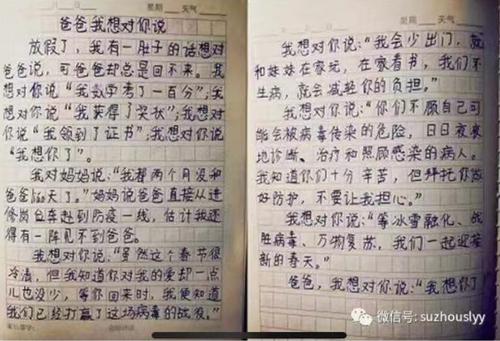 星期 天气
爸爸我想对你说
放假了，我有一肚子的话想对
爸爸说，可爸爸却总是回不来。我
想对你说“我数学考了一百分”；我想
对你说“我获得了奖状”；我想对
你说“我领到了证书”；我想对你说
“我想你了”。
我对妈妈说：“我都两个月没和
爸爸聊天了。”妈妈说爸爸直接从进
修岗位车赴到防疫一线，估计我还
得有一阵见不到爸爸。
我想对你说：“虽然这个春节很
冷清，但我知道你对我的爱却一点
儿也没少，等你回来时，我便知道
我们已经打赢了这场病毒的战役。”
星期 天气
我想对你说：“我会少出门，就
和妹妹在家玩，在家看书，我们不
生病，就会减轻你的负担。”
我想对你说：“你们不顾自己可
能会被病毒传染的危险，日日夜夜
地诊断、治疗和照顾感染的病人。
我知道你们十分辛苦，但拜托你做
好防护，不要让我担心。”
我想对你说：“等冰雪融化、战
胜病毒、万物复苏，我们一起迎接
新的春天。”
爸爸，我想对你说：“我想你了
微信号: suzhouslyy